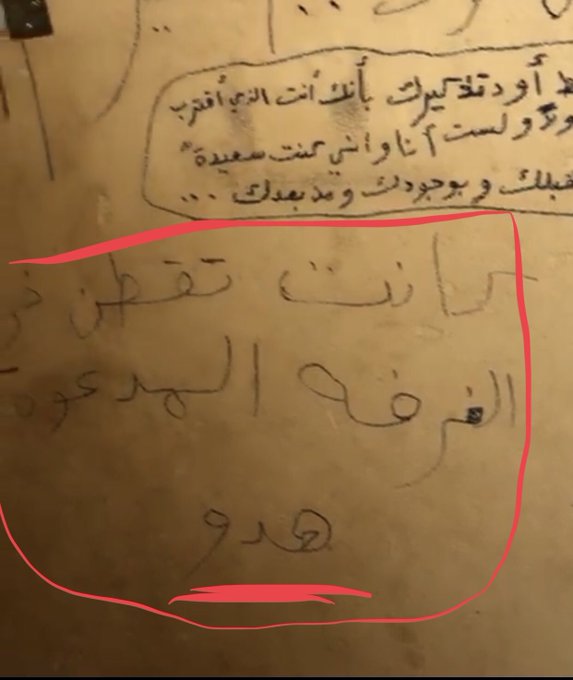 أو دقة كبيرك بأنك أنت الذي أقترب
ولست أنا وانني كنت سعيدة"
قبلك و بوجودك ومذ بعدك ...
كانت تقطن في
الغرفه المدعوه
هدو